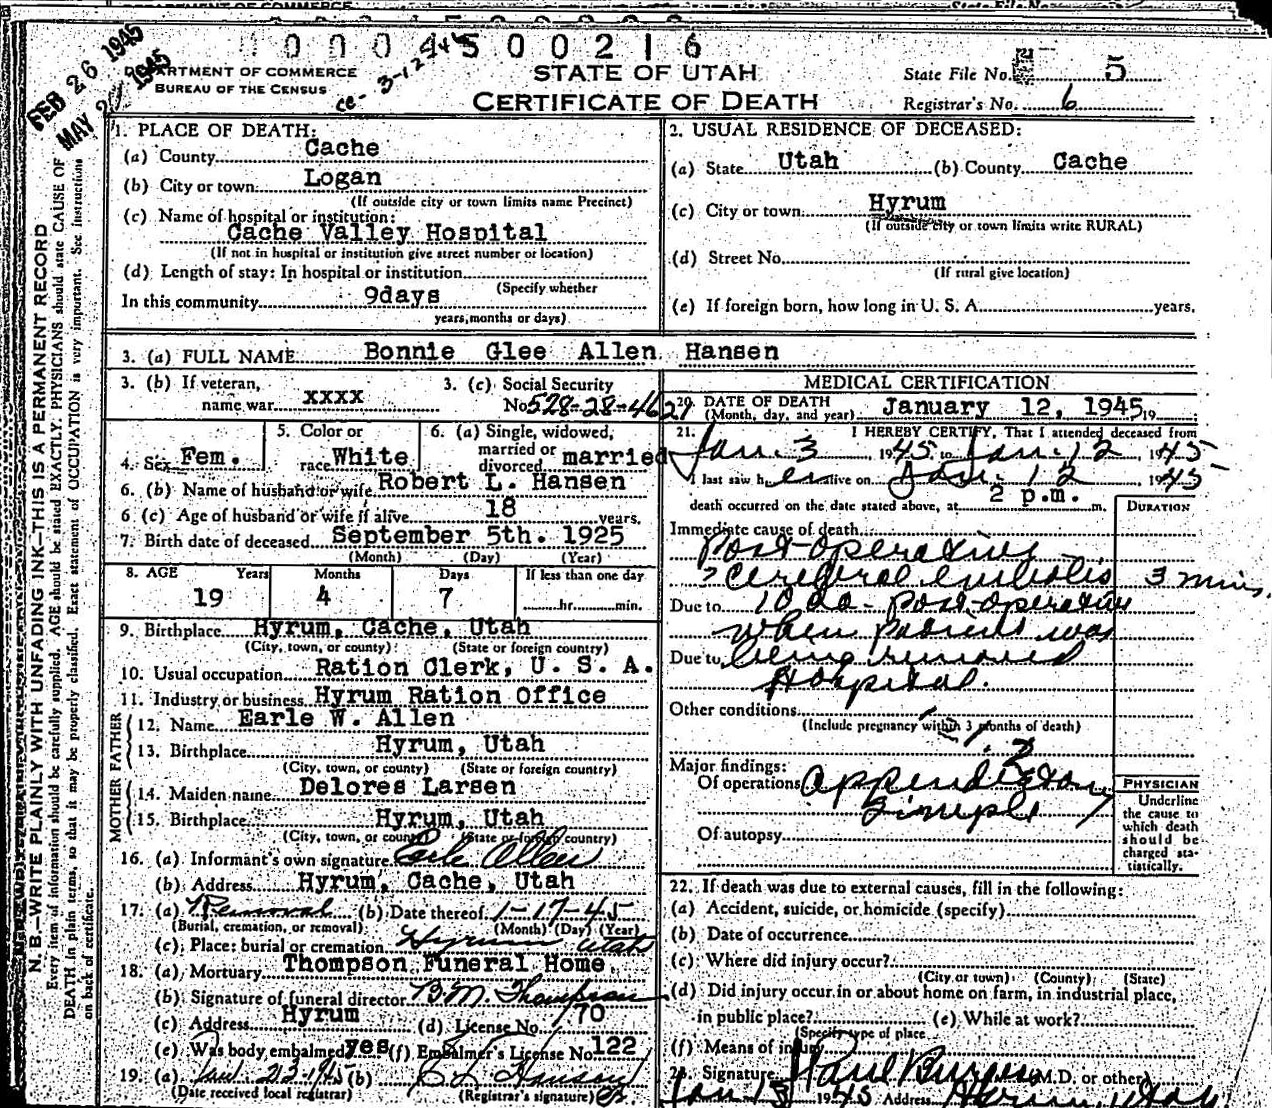 0 0 0 4 5 0 0 2 1 6
FEB 26 1945
MAY 2 1945
DEPARTMENT OF COMMERCE
BUREAU OF THE CENSUS
STATE OF UTAH
CERTIFICATE OF DEATH
State File No. 5
Registrar's No. 6
N. B.—WRITE PLAINLY WITH UNFADING INK—THIS IS A PERMANENT RECORD
Every item of information should be carefully supplied. AGE should be stated EXACTLY. PHYSICIANS should state CAUSE OF
DEATH in plain terms, so that it may be properly classified. Exact statement of OCCUPATION is very important. See instructions
on back of certificate.
1. PLACE OF DEATH:
(a) County Cache
(b) City or town Logan
(If outside city or town limits name Precinct)
(c) Name of hospital or institution:
Cache Valley Hospital
(If not in hospital or institution give street number or location)
(d) Length of stay: In hospital or institution
(Specify whether
In this community 9days
years, months or days)
2. USUAL RESIDENCE OF DECEASED:
(a) State Utah (b) County Cache
(c) City or town Hyrum
(If outside city or town limits write RURAL)
(d) Street No.
(If rural give location)
(e) If foreign born, how long in U. S. A. years.
3. (a) FULL NAME Bonnie Glee Allen Hansen
3. (b) If veteran,
name war xxxx
3. (c) Social Security
No 528-28-4627
4. Sex Fem.
5. Color or
race White
6. (a) Single, widowed,
married or
divorced married
6. (b) Name of husband or wife Robert L. Hansen
6 (c) Age of husband or wife if alive 18 years.
7. Birth date of deceased September 5th. 1925
(Month) (Day) (Year)
8. AGE Years Months Days If less than one day
19 4 7 hr. min.
9. Birthplace Hyrum, Cache, Utah
(City, town, or county) (State or foreign country)
10. Usual occupation Ration Clerk, U. S. A.
11. Industry or business Hyrum Ration Office
FATHER
12. Name Earle W. Allen
13. Birthplace Hyrum, Utah
(City, town, or county) (State or foreign country)
MOTHER
14. Maiden name Delores Larsen
15. Birthplace Hyrum, Utah
(City, town, or county) (State or foreign country)
16. (a) Informant's own signature Earle Allen
(b) Address Hyrum, Cache, Utah
17. (a) Removal (b) Date thereof 1-17-45
(Burial, cremation, or removal) (Month) (Day) (Year)
(c) Place: burial or cremation Hyrum Utah
18. (a) Mortuary Thompson Funeral Home
(b) Signature of funeral director B.M. Thompson
(c) Address Hyrum (d) License No. 170
(e) Was body embalmed yes (f) Embalmer's License No 122
19. (a) Jan. 23 1945 (b) Hansen
(Date received local registrar) (Registrar's signature)
MEDICAL CERTIFICATION
20. DATE OF DEATH
(Month, day, and year) January 12, 1945 19
21. I HEREBY CERTIFY, That I attended deceased from
Jan. 3 1945 to Jan. 12 1945
I last saw her alive on Jan. 12 1945
death occurred on the date stated above, at 2 p.m. m.
DURATION
Immediate cause of death
Post-operative
? cerebral embolis 3 mins.
Due to 10 da - post-operative
when patient was
Due to being removed
Hospital.
Other conditions
(Include pregnancy within 3 months of death)
Major findings:
Of operations Appendectomy
Simple
Of autopsy
PHYSICIAN
Underline
the cause to
which death
should be
charged sta-
tistically.
22. If death was due to external causes, fill in the following:
(a) Accident, suicide, or homicide (specify)
(b) Date of occurrence
(c) Where did injury occur?
(City or town) (County) (State)
(d) Did injury occur in or about home on farm, in industrial place,
in public place? (e) While at work?
(Specify type of place
(f) Means of injury
Signature Paul Burgess (M.D. or other)
1945 Address Hyrum, Utah